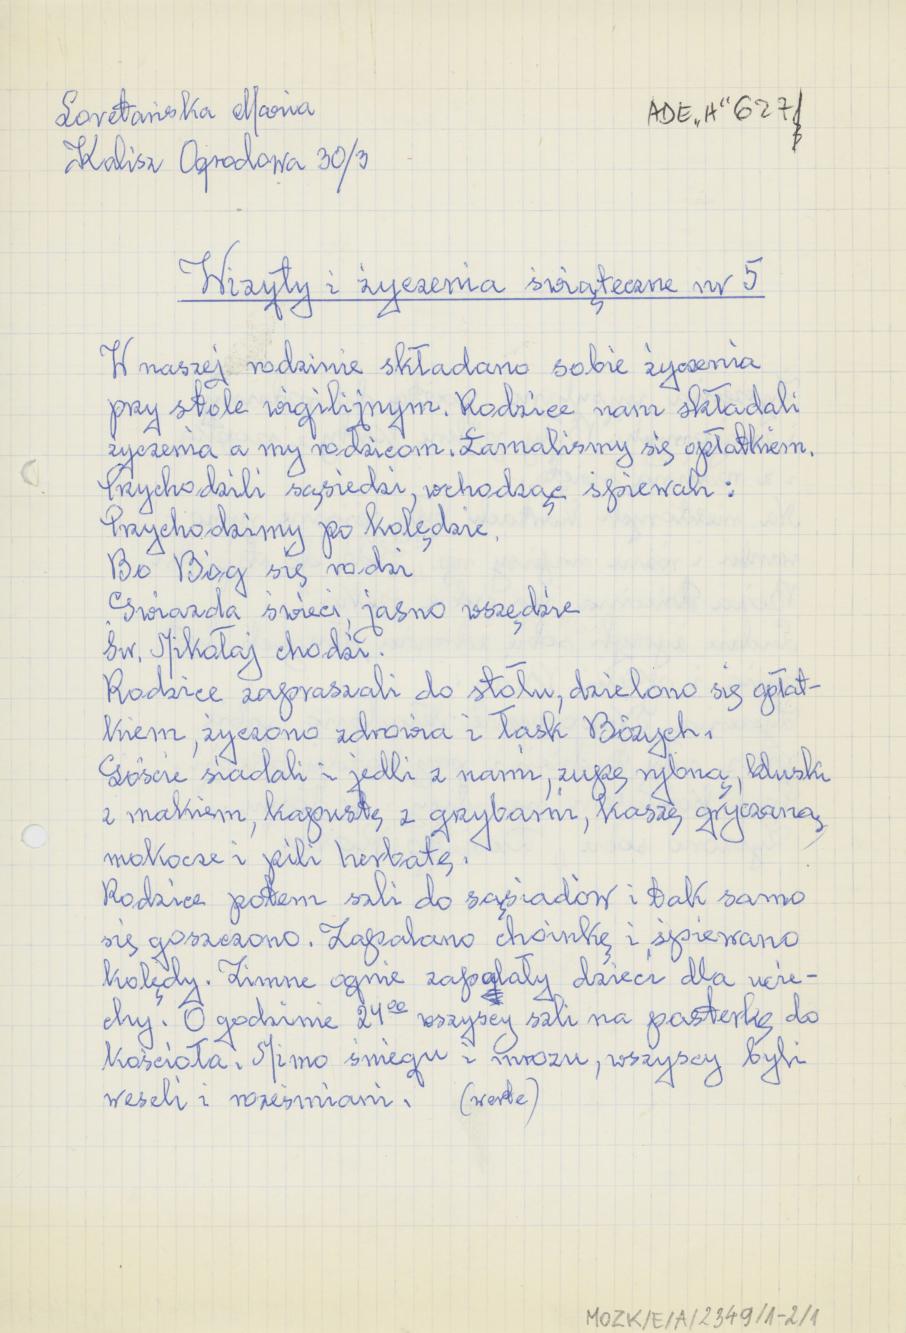 Loretańska Maria
ADE „H" 627/
Kalisz Ogrodowa 30/3
Wizyty i życzenia świąteczne nr 5
W naszej rodzinie składano sobie życzenia
przy stole wigilijnym. Rodzice nam składali
życzenia a my rodzicom. Łamaliśmy się opłatkiem.
Przychodzili sąsiedzi, wchodząc śpiewali:
Przychodzimy po kolędzie.
Bo Bóg się rodzi
Gwiazda świeci, jasno wszędzie
Św. Mikołaj chodzi.
Rodzice zapraszali do stołu, dzielono się opłat-
kiem, życzono zdrowia i łask Bożych.
Goście siadali i jedli z nami, zupę rybną, kluski
z makiem, kapustę z grzybami, kaszę gryczaną,
mokocze i pili herbatę.
Rodzice potem szli do sąsiadów i tak samo
się goszczono. Zapalano choinkę i śpiewano
kolędy. Zimne ognie zapalały dzieci dla ucie-
chy. O godzinie 24⁰⁰ wszyscy szli na pasterkę do
kościoła. Mimo śniegu i mrozu, wszyscy byli
weseli i roześmiani. (verte)
MOZK/E/A/2349/1-2/1